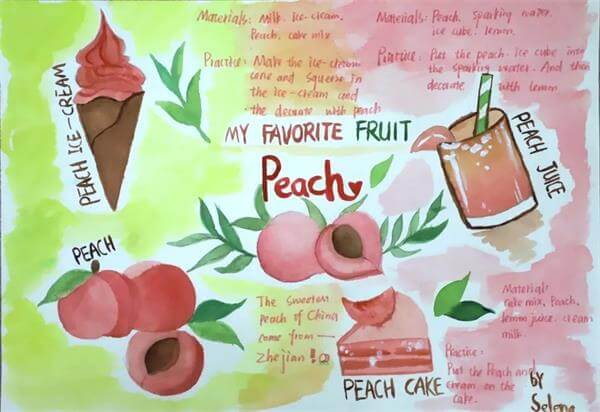 Materials: Milk. Ice-cream.
Peach. cake mix
Practice: Make the ice-cream
cone and squeeze in
the ice-cream and
the decorate with peach
PEACH ICE-CREAM
Materials: Peach. sparking water.
ice cube. lemon.
Practice: Put the peach. ice cube into
the sparking water. And then
decorate with lemon
PEACH JUICE
MY FAVORITE FRUIT
Peach
PEACH
The Sweetest
peach of China
come from
Zhejian!
PEACH CAKE
Material:
cake mix. Peach.
lemon juice. cream
milk.
Practice:
Put the Peach and
cream on the
cake.
by
Selena